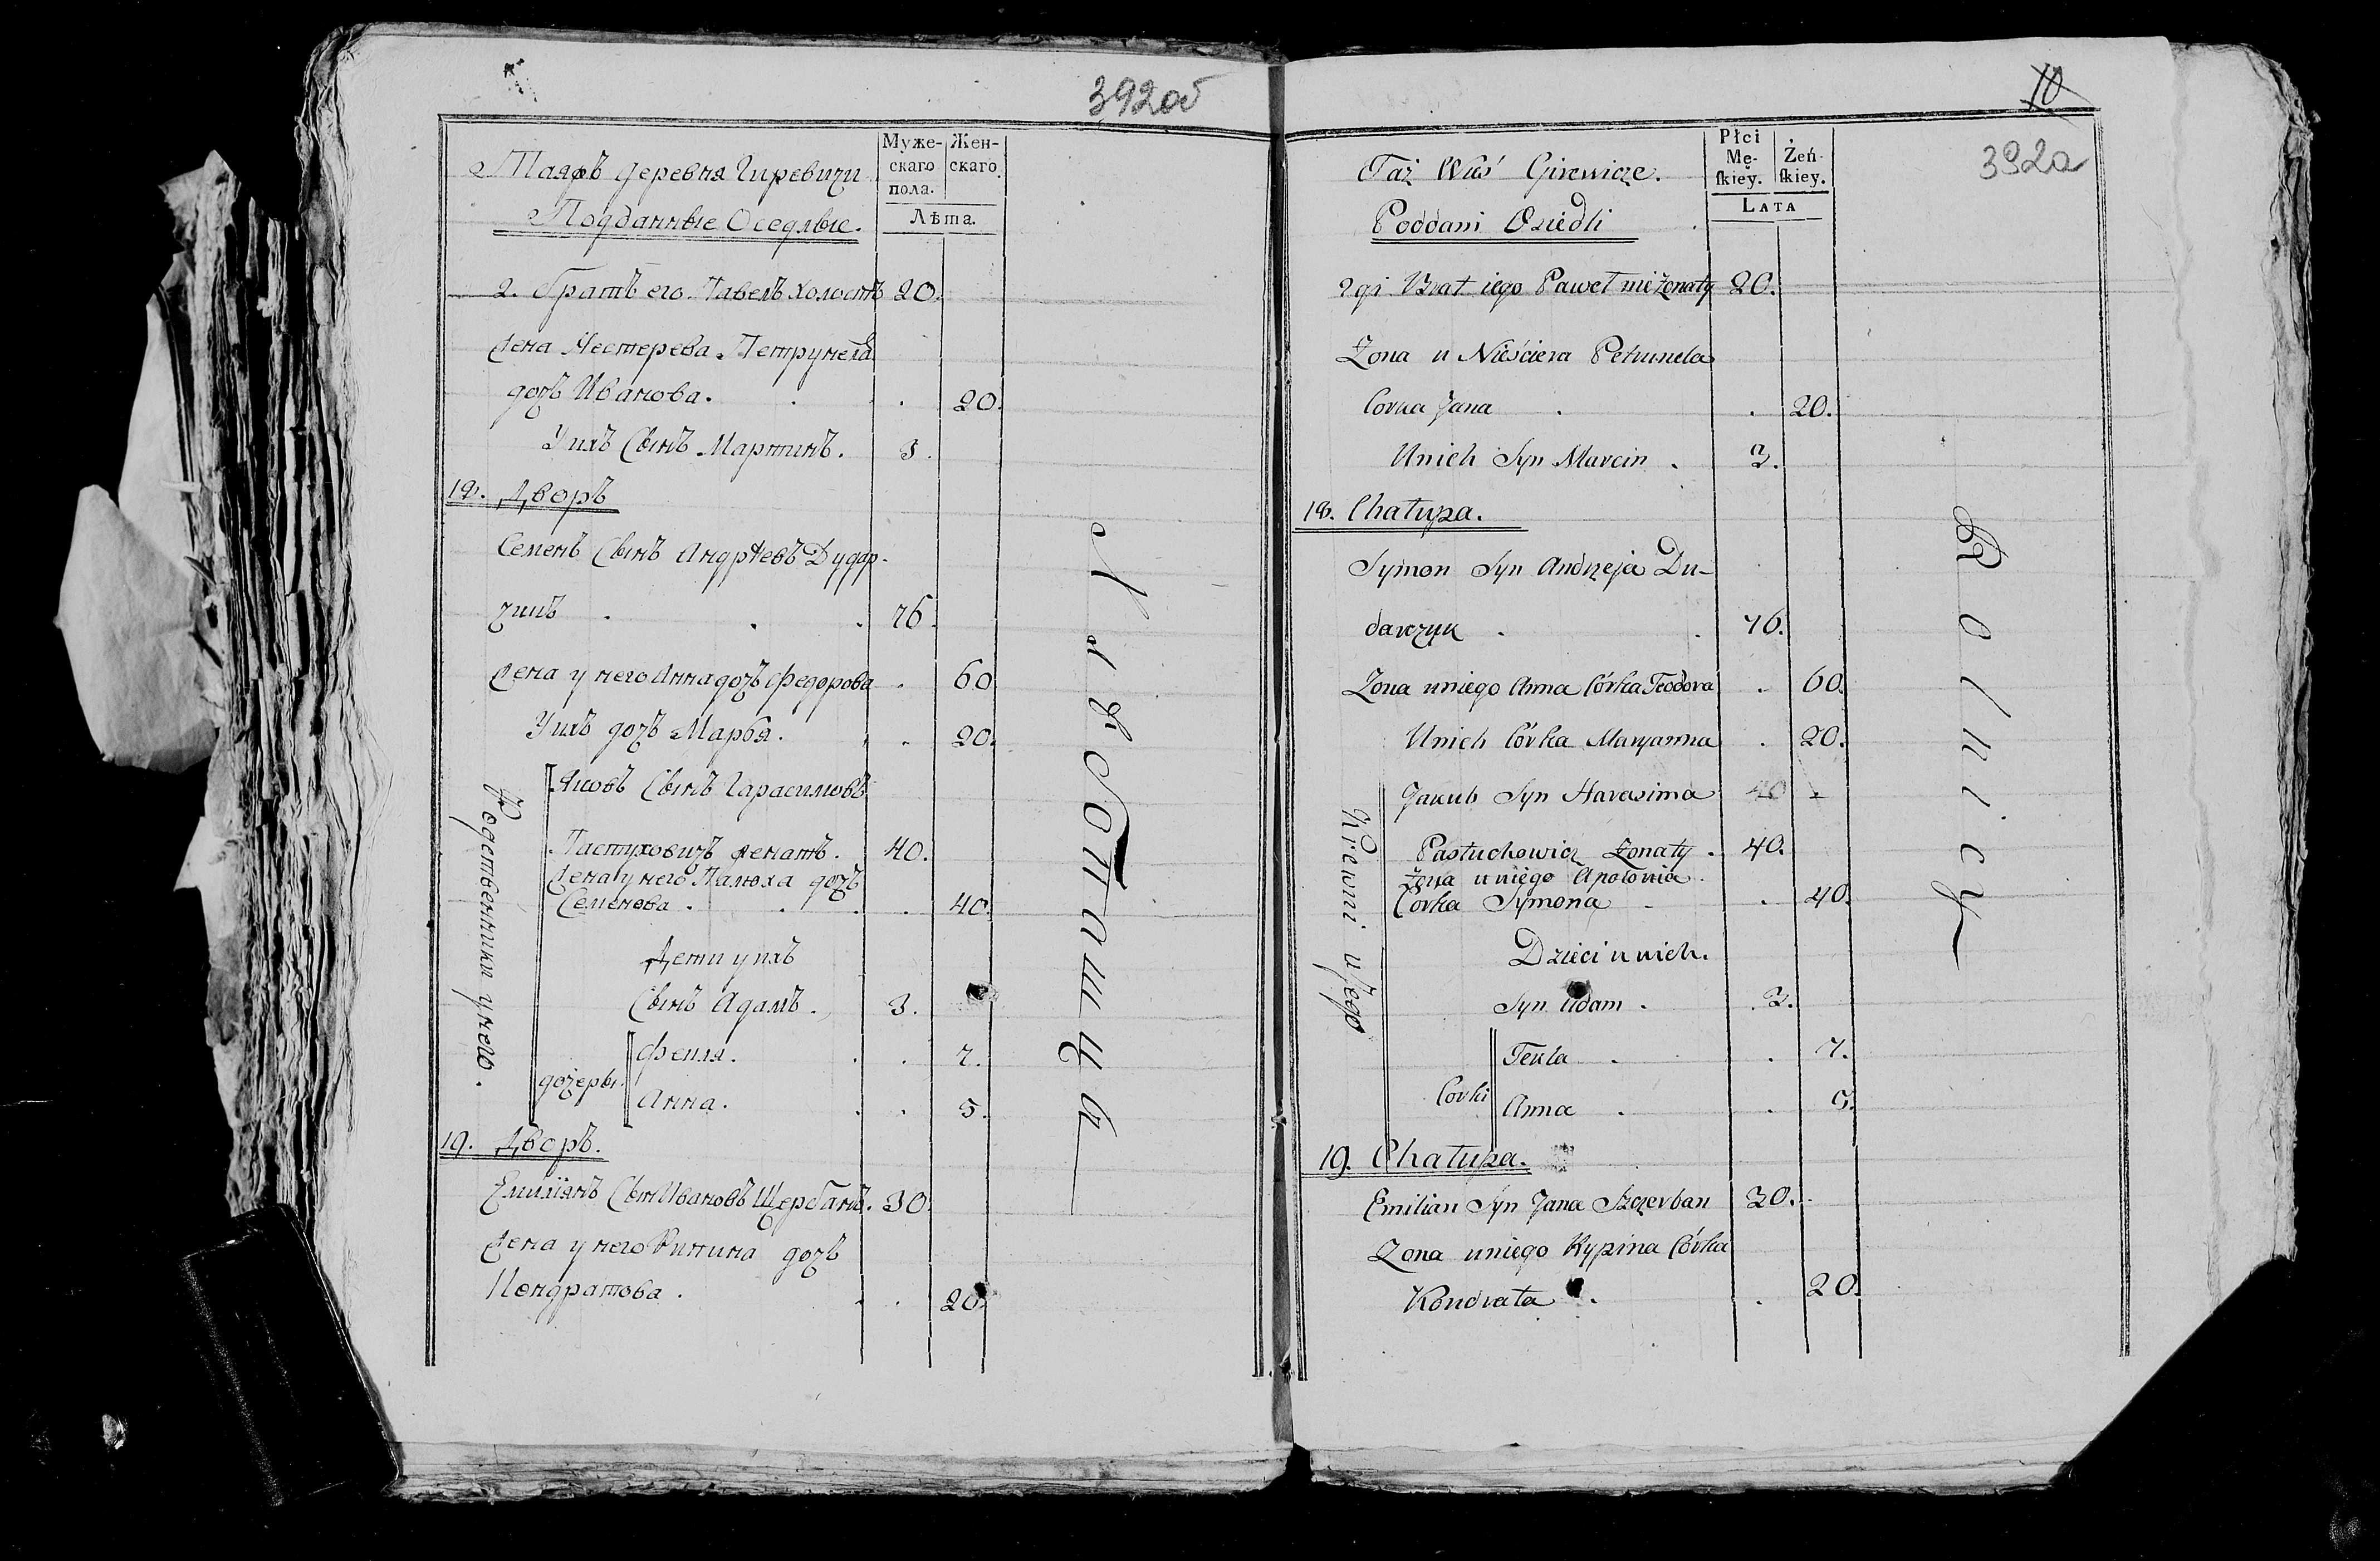 392об
Муже-
скаго
пола.
Жен-
скаго
Лѣта.
Таяжъ деревня Гиревичи
Подданные Оседлые.
2. братъ его Павелъ холостъ 20.
жена Нестерева Петрунеля
дочь Иванова. 20.
У нихъ Сынъ Мартинъ. 3.
18. Дворъ
Семенъ Сынъ Андреевъ Дудар-
чикъ 76.
жена у него Анна дочь Федорова 60
У ихъ дочь Марья. 20.
Родственники у него.
Яковъ Сынъ Гарасимовъ
Пастуховичъ женатъ. 40.
жена у него Палюха дочь
Семенова. 40.
Дети у ихъ
Сынъ Адамъ. 3.
дочеры
Фекля. 7.
Анна. 5.
19. Дворъ.
Емилiянъ Сынъ Ивановъ Щербанъ. 30.
жена у него Кипина дочь
Кондратова. 20.
10
392а
Płci
Mę-
ſkiey.
Żeń-
ſkiey.
LATA
Taż Wieś Girewicze.
Poddani Osiedli
2gi Brat iego Paweł nieżonaty 20.
Żona u Nieściera Petrunela
Corka Jana 20.
Unich Syn Marcin. 3.
18. Chałupa.
Symon Syn Andrzeja Du-
darczyk 76.
Żona uniego Anna Córka Teodora 60.
Unich Córka Maryanna 20.
Krewni u Jego
Jakub Syn Harasima 40
Pastuchowicz żonaty. 40.
żona uniego Apolonia
Corka Symona 40.
Dzieci u nich.
Syn Adam. 3.
Corki
Tekla 7.
Anna 5.
Rolnicy
19. Chałupa.
Emilian Syn Jana Szczerban 30.
Żona uniego Kypina Córka
Kondrata. 20.